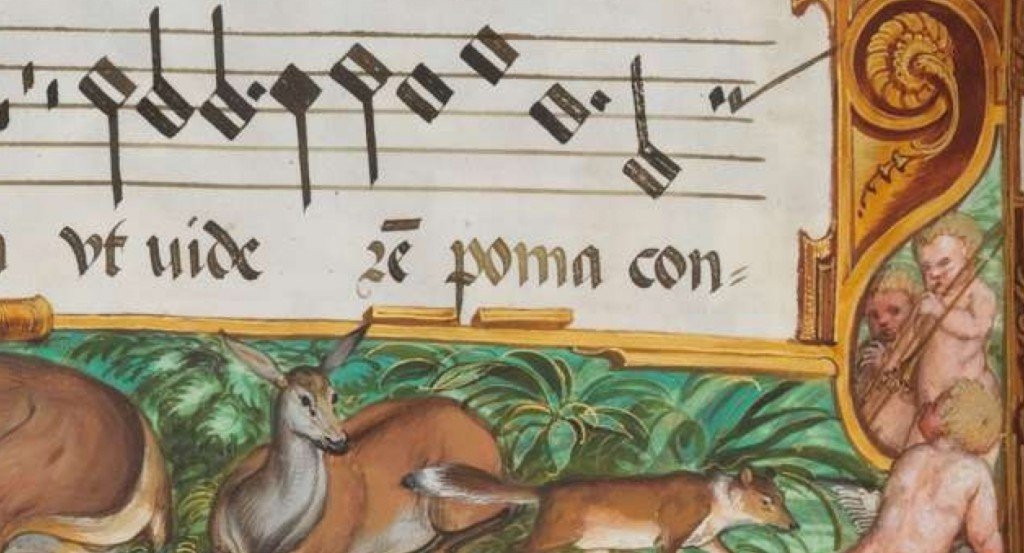 vt uide rē poma con=